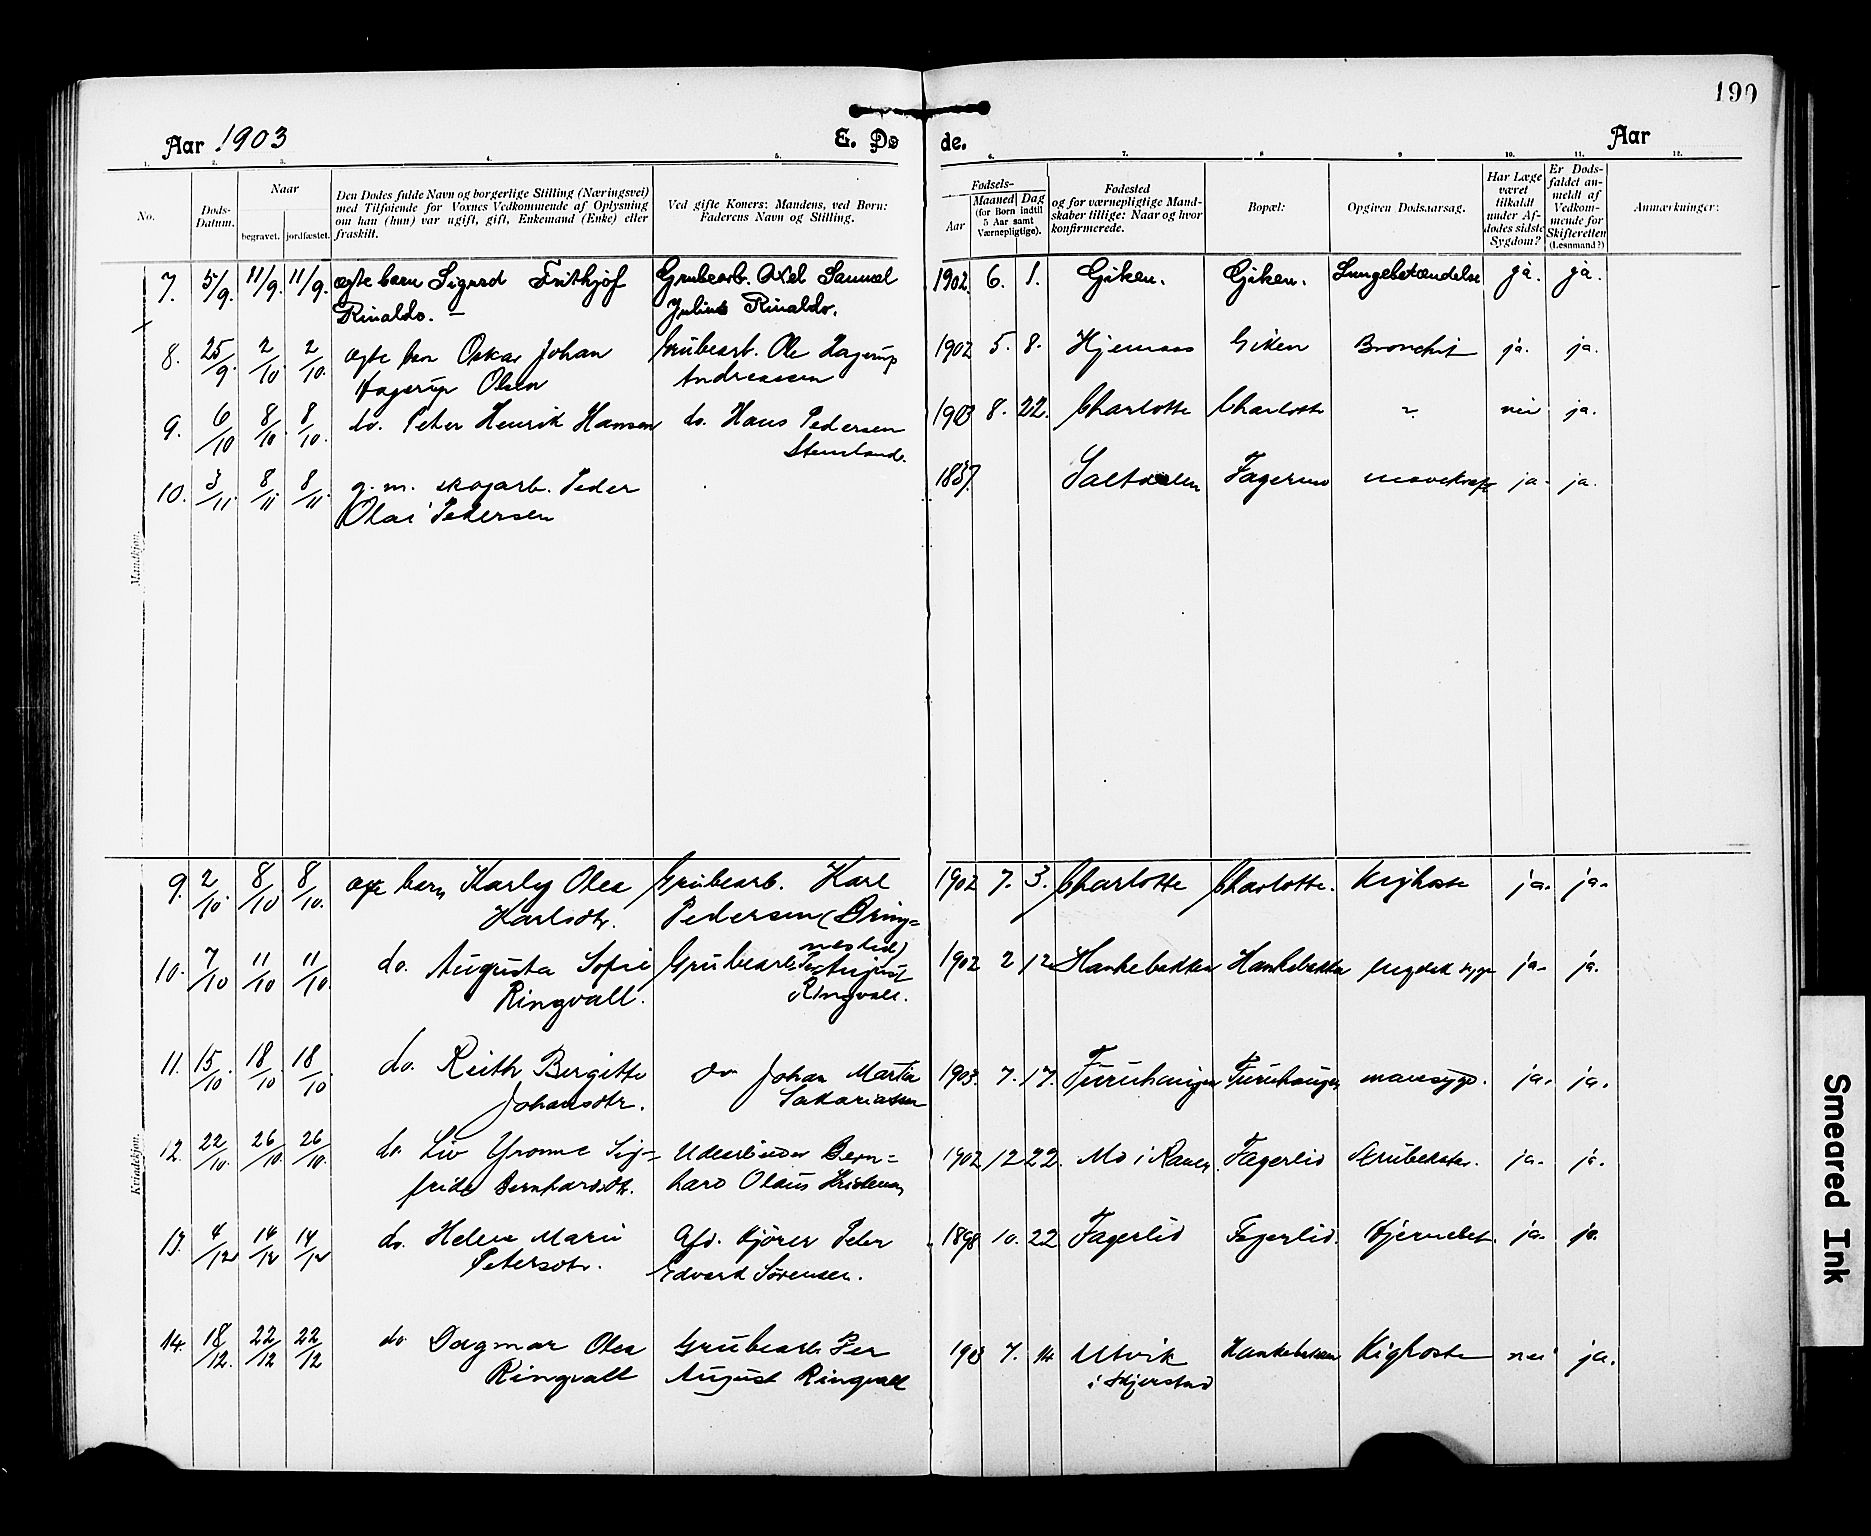 190
Aar 1903 E. Dø de. Aar
1. 2. 3. 4. 5. 6. 7. 8 9 10. 11. 12.
No.
Døds-Datum.
Naar
begravet. jordfæstet.
Den Dødes fulde Navn og borgerlige Stilling (Næringsvei)
med Tilføiende for Voxnes Vedkommende af Oplysning
om han (hun) var ugift, gift, Enkemand (Enke) eller
fraskilt.
Ved gifte Koner: Mandens, ved Børn:
Faderens Navn og Stilling.
Fødsels-
Aar
Maaned Dag
(for Børn indtil
5 Aar samt
Værnepligtige).
Fødested
og for værnepligtige Mand-
skaber tillige: Naar og hvor
konfirmerede.
Bopæl:
Opgiven Dødsaarsag.
Har Læge
været
tilkaldt
under Af-
dødes sidste
Sygdom?
Er Døds-
faldet an-
meldt af
Vedkom-
mende for
Skifteretten
(Lensmand?)
Anmærkninger:
Mandkjøn.
7. 5/9. 11/9. 11/9. ægte barn Sigurd Frithjof Grubearb. Axel Samuel 1902. 6. 1. Giken. Giken. Lungebetændelse ja. ja.
Rinaldo. Julius Rinaldo.
8. 25/9 2/10. 2/10. ægte barn Oskar Johan Grubearb. Ole Hagerup 1902 5. 8. Hjemaas Giken Bronchit ja. ja.
Hagerup Olsen Andreassen
9. 6/10 8/10. 8/10. do. Peter Henrik Hansen do. Hans Pedersen 1903 8. 22. Charlotte Charlotte ? nei ja.
Stensland.
10. 3/11. 8/11 8/11 g. m. skogarb. Peder 1837. Saltdalen Fagermo mavekræft ja. ja.
Olai Pedersen
Kvindekjøn.
9. 2/10. 8/10 8/10. ægte barn Karly Olea Grubearb. Karl 1902 7. 3. Charlotte Charlotte. Kighoste ja. ja.
Karlsdtr. Pedersen (Bring-
neslid)
10. 7/10 11/10 11/10. do. Augusta Sofie Grubearb. Per August 1902 2 12 Hankebakken Hankebakken engelsk syge ja. ja.
Ringvall. Ringvall.
11. 15./10 18/10 18/10. do. Ruth Bergitte do Johan Martin 1903. 7. 17. Furuhaugen Furuhaugen mavesyge. ja. ja.
Johansdtr. Sakariassen
12. 22/10. 26/10. 26/10. do. Liv Yvonne Sig- Udearbeider Bern- 1902 12 22. Mo i Ranen. Fagerlid Strubehoste. ja. ja.
fride Bernhardsdtr. hard Olaus Kristensen
13. 4/12 14/12 14/12 do. Helene Marie Afd. kjører Peter 1898 10. 22 Fagerlid Fagerlid. Hjernebet. ja. ja.
Petersdtr. Edvard Sørensen.
14. 18/12. 22/12 22/12 do Dagmar Olea Grubearb. Per 1903 7. 14 Utvik Hankebakken Kighoste nei ja.
Ringvall August Ringvall
Smeared Ink